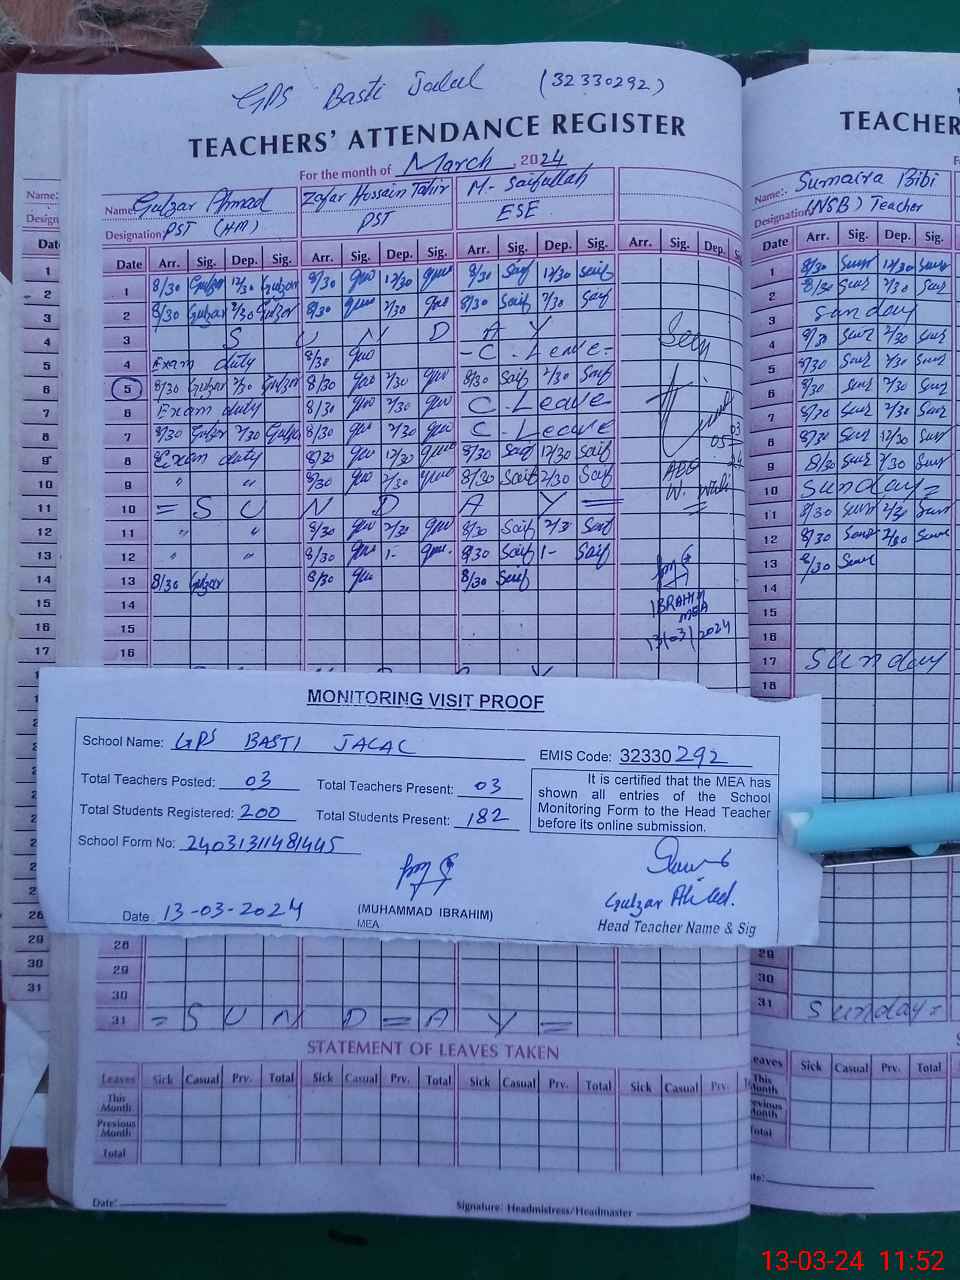 GPS Basti Jalal (32330292)
TEACHERS' ATTENDANCE REGISTER
For the month of March, 2024
Name: Gulzar Ahmad Zafar Hussain Tahir M. Saifullah
Designation: PST (HM) PST ESE
Date Arr. Sig. Dep. Sig. Arr. Sig. Dep. Sig. Arr. Sig. Dep. Sig. Arr. Sig. Dep.
1 8/30 Gulzar 12/30 Gulzar 8/30 12/30 8/30 Saif 12/30 Saif
2 8/30 Gulzar 2/30 Gulzar 8/30 2/30 8/30 Saif 2/30 Saif
3 S U N D A Y
4 Exam duty 8/30 - C. Leave - Seen
5 8/30 Gulzar 2/30 Gulzar 8/30 2/30 8/30 Saif 2/30 Saif
6 Exam duty 8/30 2/30 C. Leave
7 8/30 Gulzar 2/30 Gulzar 8/30 2/30 C. Leave
8 Exam duty 8/30 12/30 8/30 Saif 12/30 Saif
9 " " 8/30 2/30 8/30 Saif 2/30 Saif
10 = S U N D A Y =
11 " " 8/30 2/30 8/30 Saif 2/30 Saif
12 " " 8/30 1- 8/30 Saif 1- Saif
13 8/30 Gulzar 8/30 8/30 Saif
14
15
16
IBRAHIM
MEA
13/03/2024
MONITORING VISIT PROOF
School Name: GPS BASTI JALAL EMIS Code: 32330292
Total Teachers Posted: 03 Total Teachers Present: 03
Total Students Registered: 200 Total Students Present: 182
School Form No: 24031311481445
It is certified that the MEA has shown all entries of the School Monitoring Form to the Head Teacher before its online submission.
Date 13-03-2024 (MUHAMMAD IBRAHIM)
MEA
Gulzar Ahmad.
Head Teacher Name & Sig
28
29
30
31 = S U N D = A Y =
STATEMENT OF LEAVES TAKEN
Leaves Sick Casual Prv. Total Sick Casual Prv. Total Sick Casual Prv. Total Sick Casual Prv.
This Month
Previous Month
Total
Date: Signature: Headmistress/Headmaster
TEACHER
Name: Sumaira Bibi
Designation: (NSB) Teacher
Date Arr. Sig. Dep. Sig.
1 8/30 12/30
2 8/30 2/30
3 Sunday
4 8/30 2/30
5 8/30 2/30
6 8/30 2/30
7 8/30 2/30
8 8/30 12/30
9 8/30 2/30
10 Sunday =
11 8/30 2/30
12 8/30 2/30
13 8/30
14
15
16
17 Sunday
18
29
30
31 Sunday =
Leaves Sick Casual Prv. Total
This Month
Previous Month
Total
13-03-24 11:52